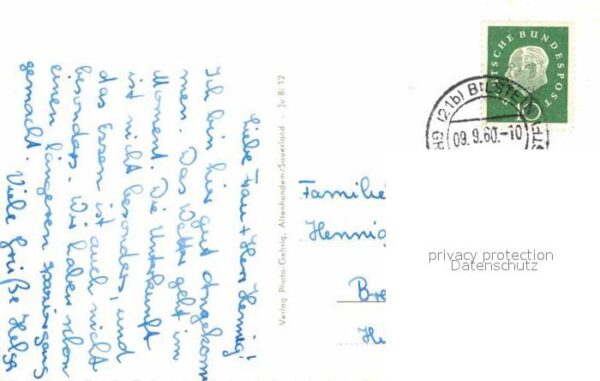 Liebe Frau + Herr Hennig!
Ich bin hier gut angekom
men. Das Wetter geht im
Moment. Die Unterkunft
ist nicht besonders, und
das Essen ist auch nicht
besonders. Wir haben schon
einen längeren Spaziergang
gemacht. Viele Grüße Helga
Verlag Photo-Gehrig, Altenhundem/Sauerland · Ju Bi 12
DEUTSCHE BUNDESPOST
10
(21b) BILSTEIN
09.9.60.-10
Familie
Hennig
Bre
He
privacy protection
Datenschutz